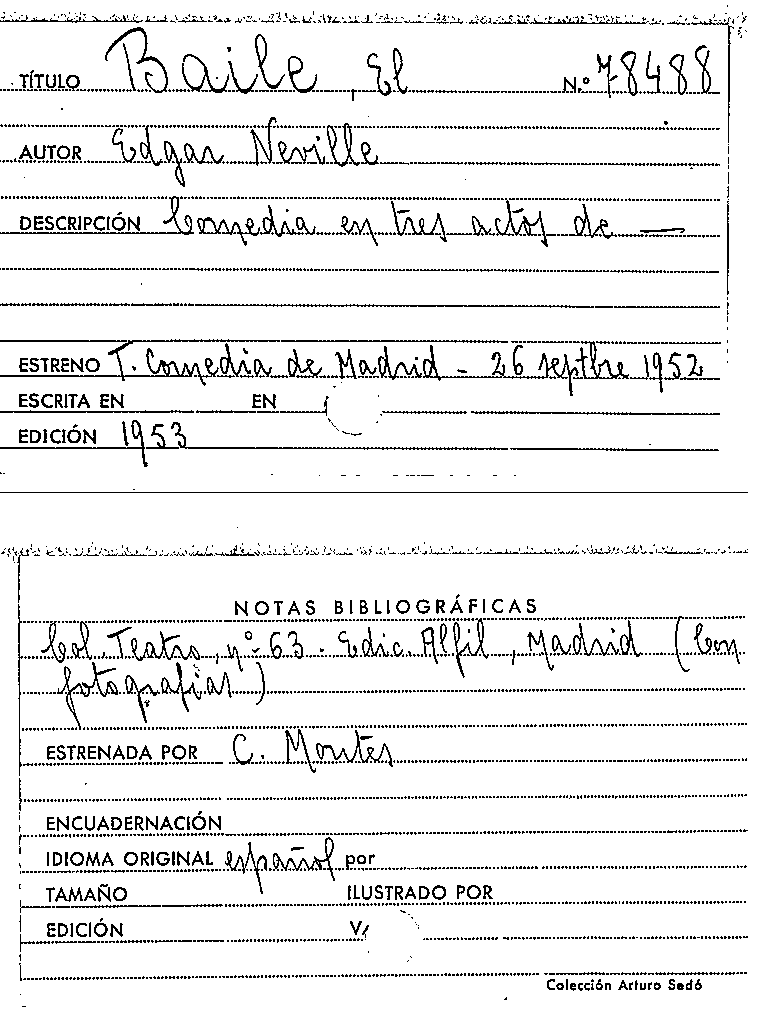 TÍTULO Baile, El N.º 78488
AUTOR Edgar Neville
DESCRIPCIÓN Comedia en tres actos de —
ESTRENO T. Comedia de Madrid - 26 septbre 1952
ESCRITA EN EN
EDICIÓN 1953
NOTAS BIBLIOGRÁFICAS
Col. Teatro, nº 63. Edic. Alfil, Madrid (Con
fotografias)
ESTRENADA POR C. Montes
ENCUADERNACIÓN
IDIOMA ORIGINAL español por
TAMAÑO ILUSTRADO POR
EDICIÓN
Colección Arturo Sedó